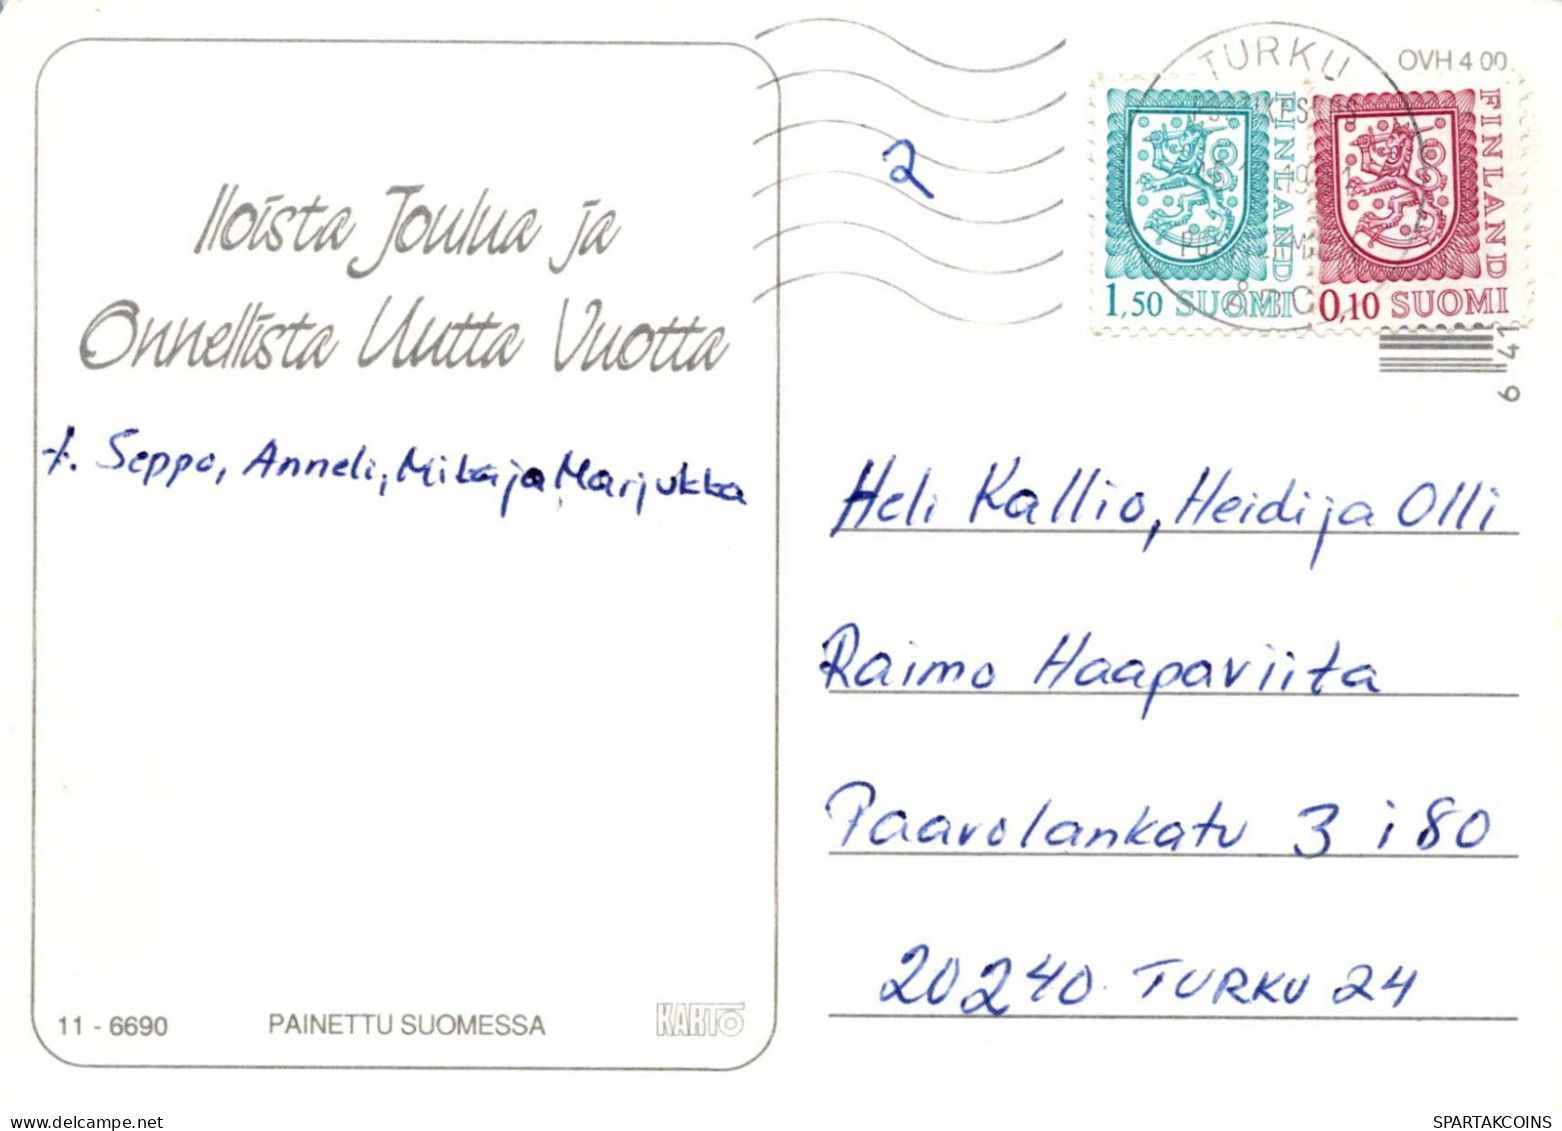 Iloista Joulua ja
Onnellista Uutta Vuotta
t. Seppo, Anneli, Mika ja Marjukka
11 - 6690 PAINETTU SUOMESSA KARTO
2
TURKU
OVH 4 00
FINLAND
1,50 SUOMI
FINLAND
0,10 SUOMI
Heli Kallio, Heidi ja Olli
Raimo Haapaviita
Paavolankatu 3 i 80
20240 TURKU 24
SPARTAKCOINS